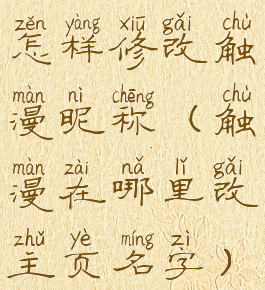 zěn yàng xiū gǎi chù
怎样修改触
màn nì chēng chù
漫昵称（触
màn zài nǎ lǐ gǎi
漫在哪里改
zhǔ yè míng zì
主页名字）